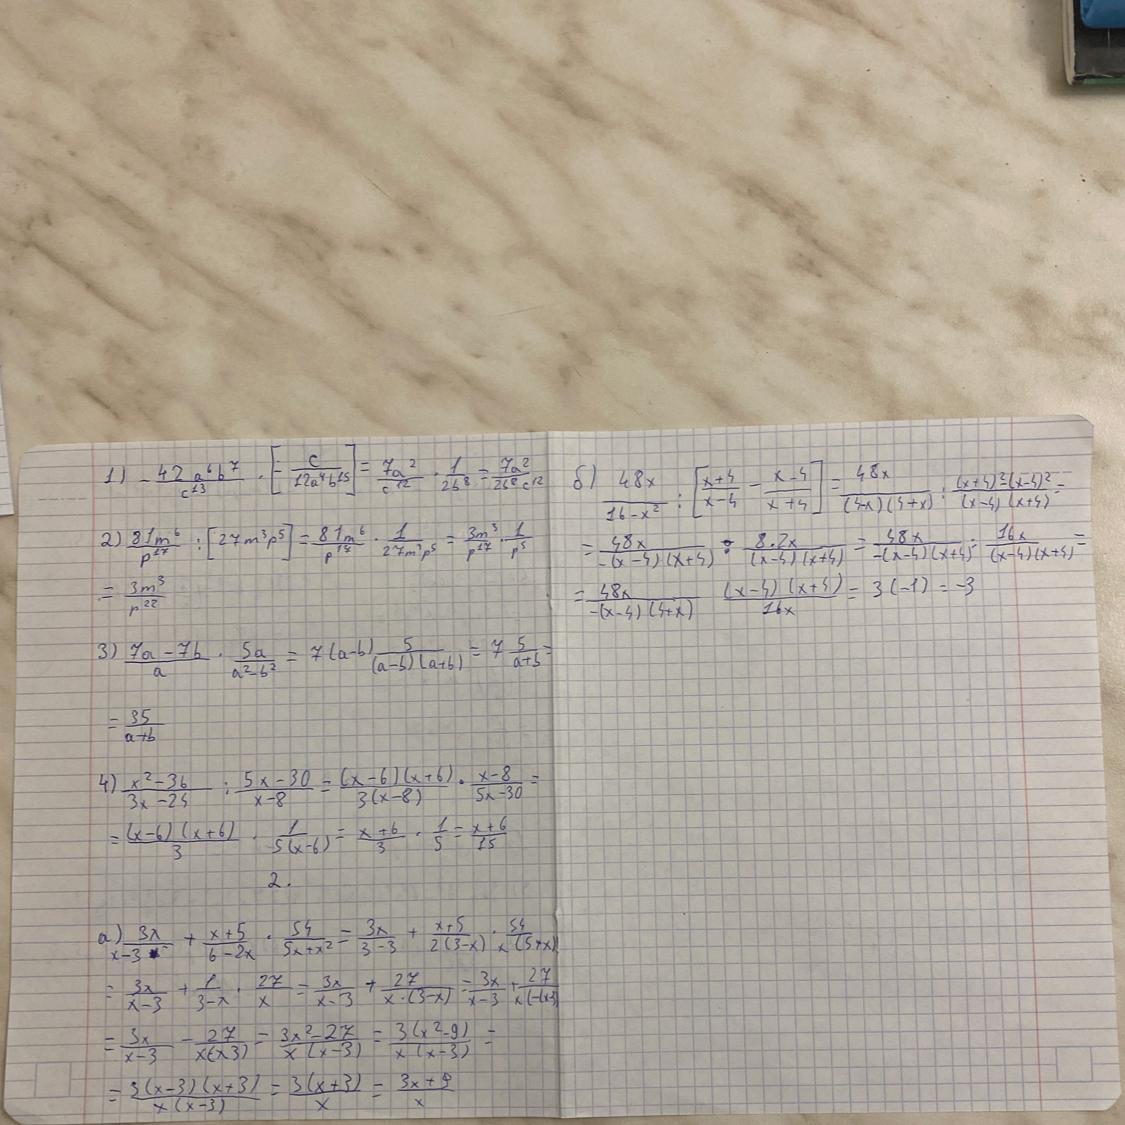 1) - 42a⁶b⁷/c¹³ · [- c/12a⁴b¹⁵] = 7a²/c¹² · 1/2b⁸ = 7a²/2b⁸c¹²
2) 81m⁶/p¹⁷ : [27m³p⁵] = 81m⁶/p¹⁷ · 1/27m³p⁵ = 3m³/p¹⁷ · 1/p⁵
= 3m³/p²²
3) 7a - 7b/a · 5a/a² - b² = 7(a-b) 5/(a-b)(a+b) = 7 5/a+b =
= 35/a+b
4) x² - 36/3x - 24 : 5x - 30/x - 8 = (x-6)(x+6)/3(x-8) · x-8/5x-30 =
= (x-6)(x+6)/3 · 1/5(x-6) = x+6/3 · 1/5 = x+6/15
2.
а) 3x/x-3 + x+5/6-2x · 54/5x+x² = 3x/3-3 + x+5/2(3-x) · 54/x(5+x)
= 3x/x-3 + 1/3-x · 27/x = 3x/x-3 + 27/x·(3-x) = 3x/x-3 + 27/x(-(x-3)
= 3x/x-3 - 27/x(x3) = 3x²-27/x(x-3) = 3(x²-9)/x(x-3) =
= 3(x-3)(x+3)/x(x-3) = 3(x+3)/x = 3x+9/x
б) 48x/16-x² : [x+4/x-4 - x-4/x+4] = 48x/(4-x)(4+x) : (x+4)²-(x-4)²/(x-4)(x+4) =
= 48x/-(x-4)(x+4) : 8·2x/(x-4)(x+4) = 48x/-(x-4)(x+4) : 16x/(x-4)(x+4) =
= 48x/-(x-4)(4+x) (x-4)(x+4)/16x = 3(-1) = -3